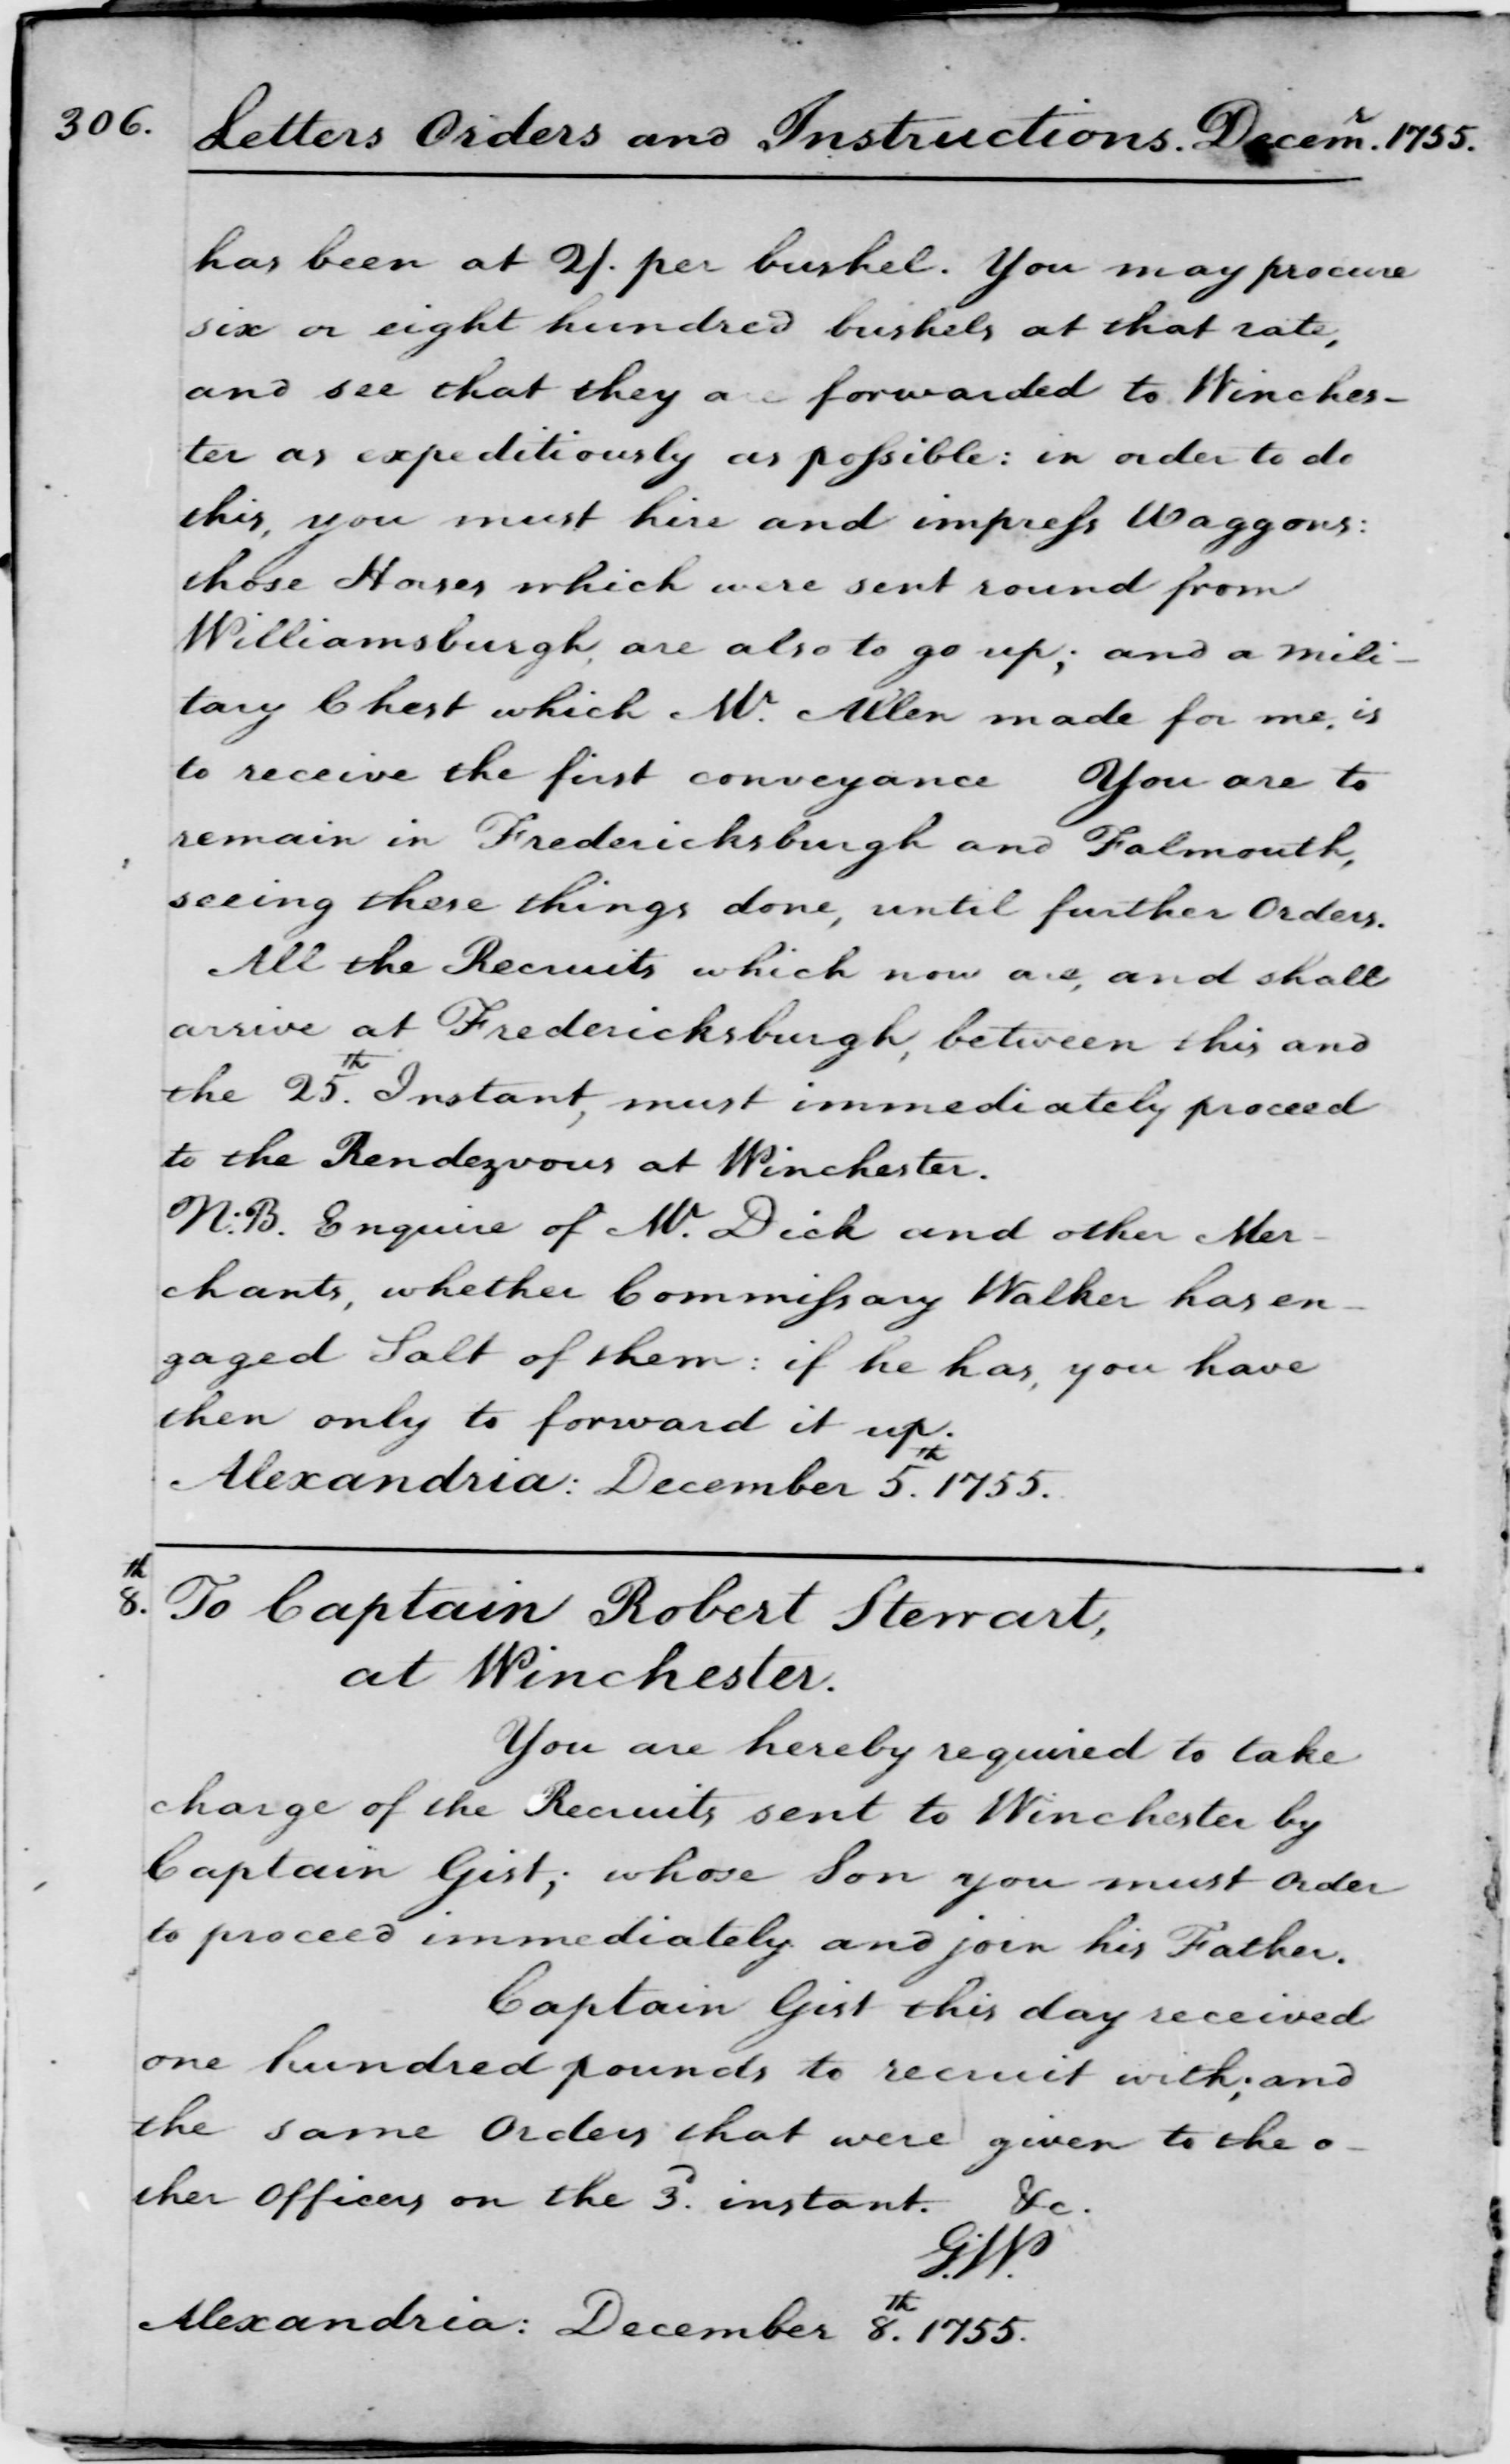 306. Letters Orders and Instructions. Decemr. 1755.
has been at 2/. per bushel. You may procure
six or eight hundred bushels at that rate,
and see that they are forwarded to Winches-
ter as expeditiously as possible: in order to do
this, you must hire and impress Waggons:
those Horses which were sent round from
Williamsburgh, are also to go up; and a mili-
tary Chest which Mr. Allen made for me, is
to receive the first conveyance You are to
remain in Fredericksburgh and Falmouth,
seeing these things done, until further Orders.
All the Recruits which now are, and shall
arrive at Fredericksburgh, between this and
the 25th. Instant, must immediately proceed
to the Rendezvous at Winchester.
N:B. Enquire of Mr. Dick and other Mer-
chants, whether Commissary Walker has en-
gaged Salt of them: if he has, you have
then only to forward it up.
Alexandria: December 5th. 1755.
8th. To Captain Robert Stewart,
at Winchester.
You are hereby required to take
charge of the Recruits sent to Winchester by
Captain Gist; whose Son you must order
to proceed immediately and join his Father.
Captain Gist this day received
one hundred pounds to recruit with; and
the same Orders that were given to the o-
ther Officers on the 3d. instant. &c.
G:W.
Alexandria: December 8th. 1755.